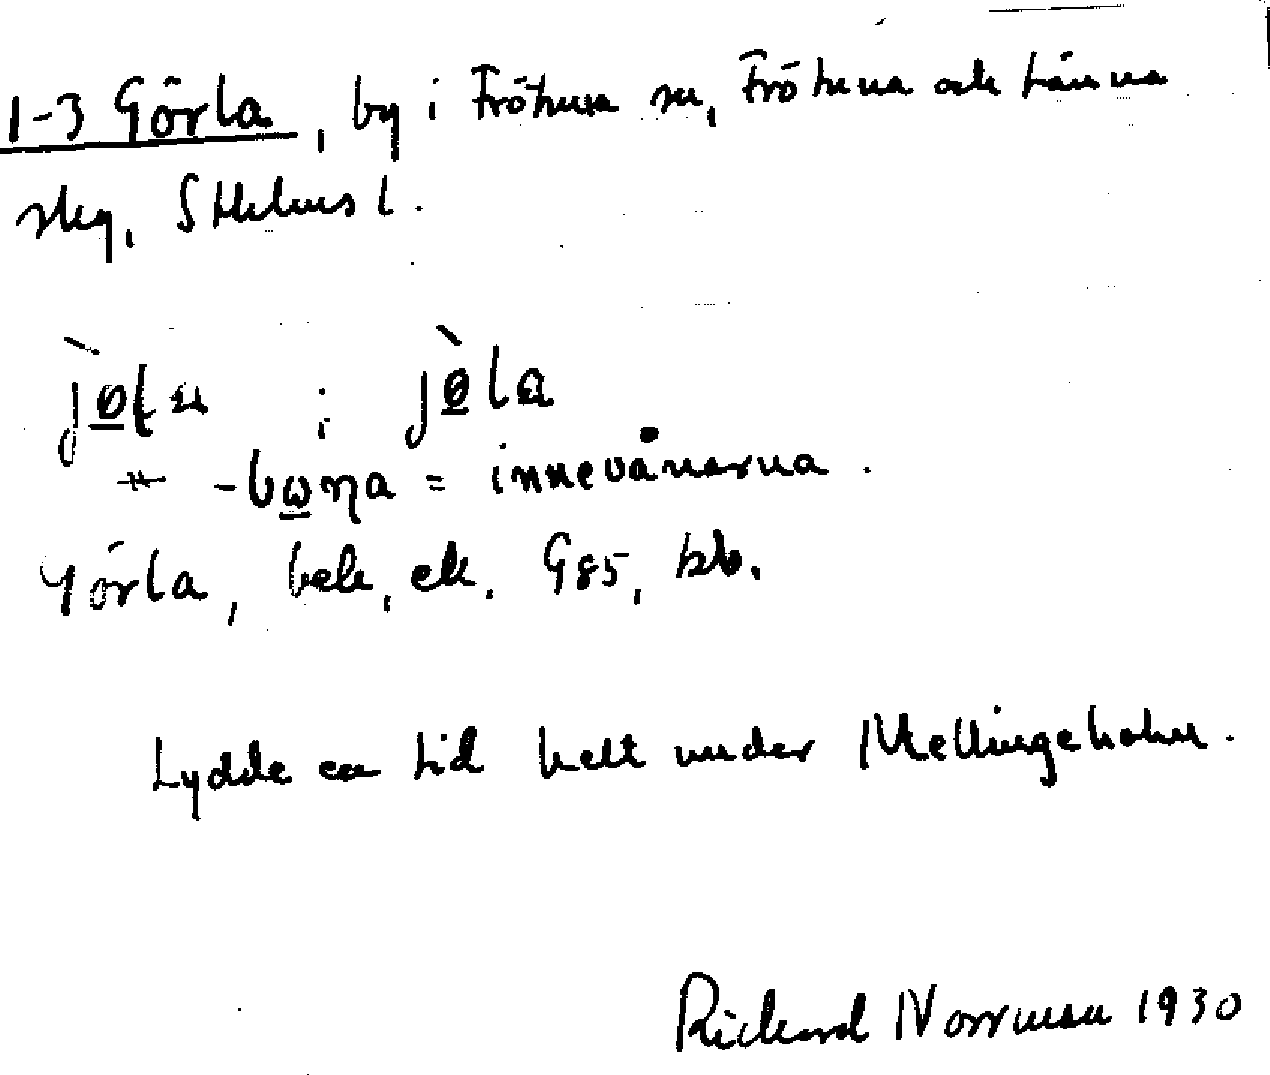 1-3 Görla, by i Frötuna sn, Frötuna och Länna
skg, Sthlms l.
jøla
-bωŋa = innevånarna.
Görla, bek, ek. G85, kb.
Lydde en tid helt under Mellingeholm.
Rickard Norrman 1930